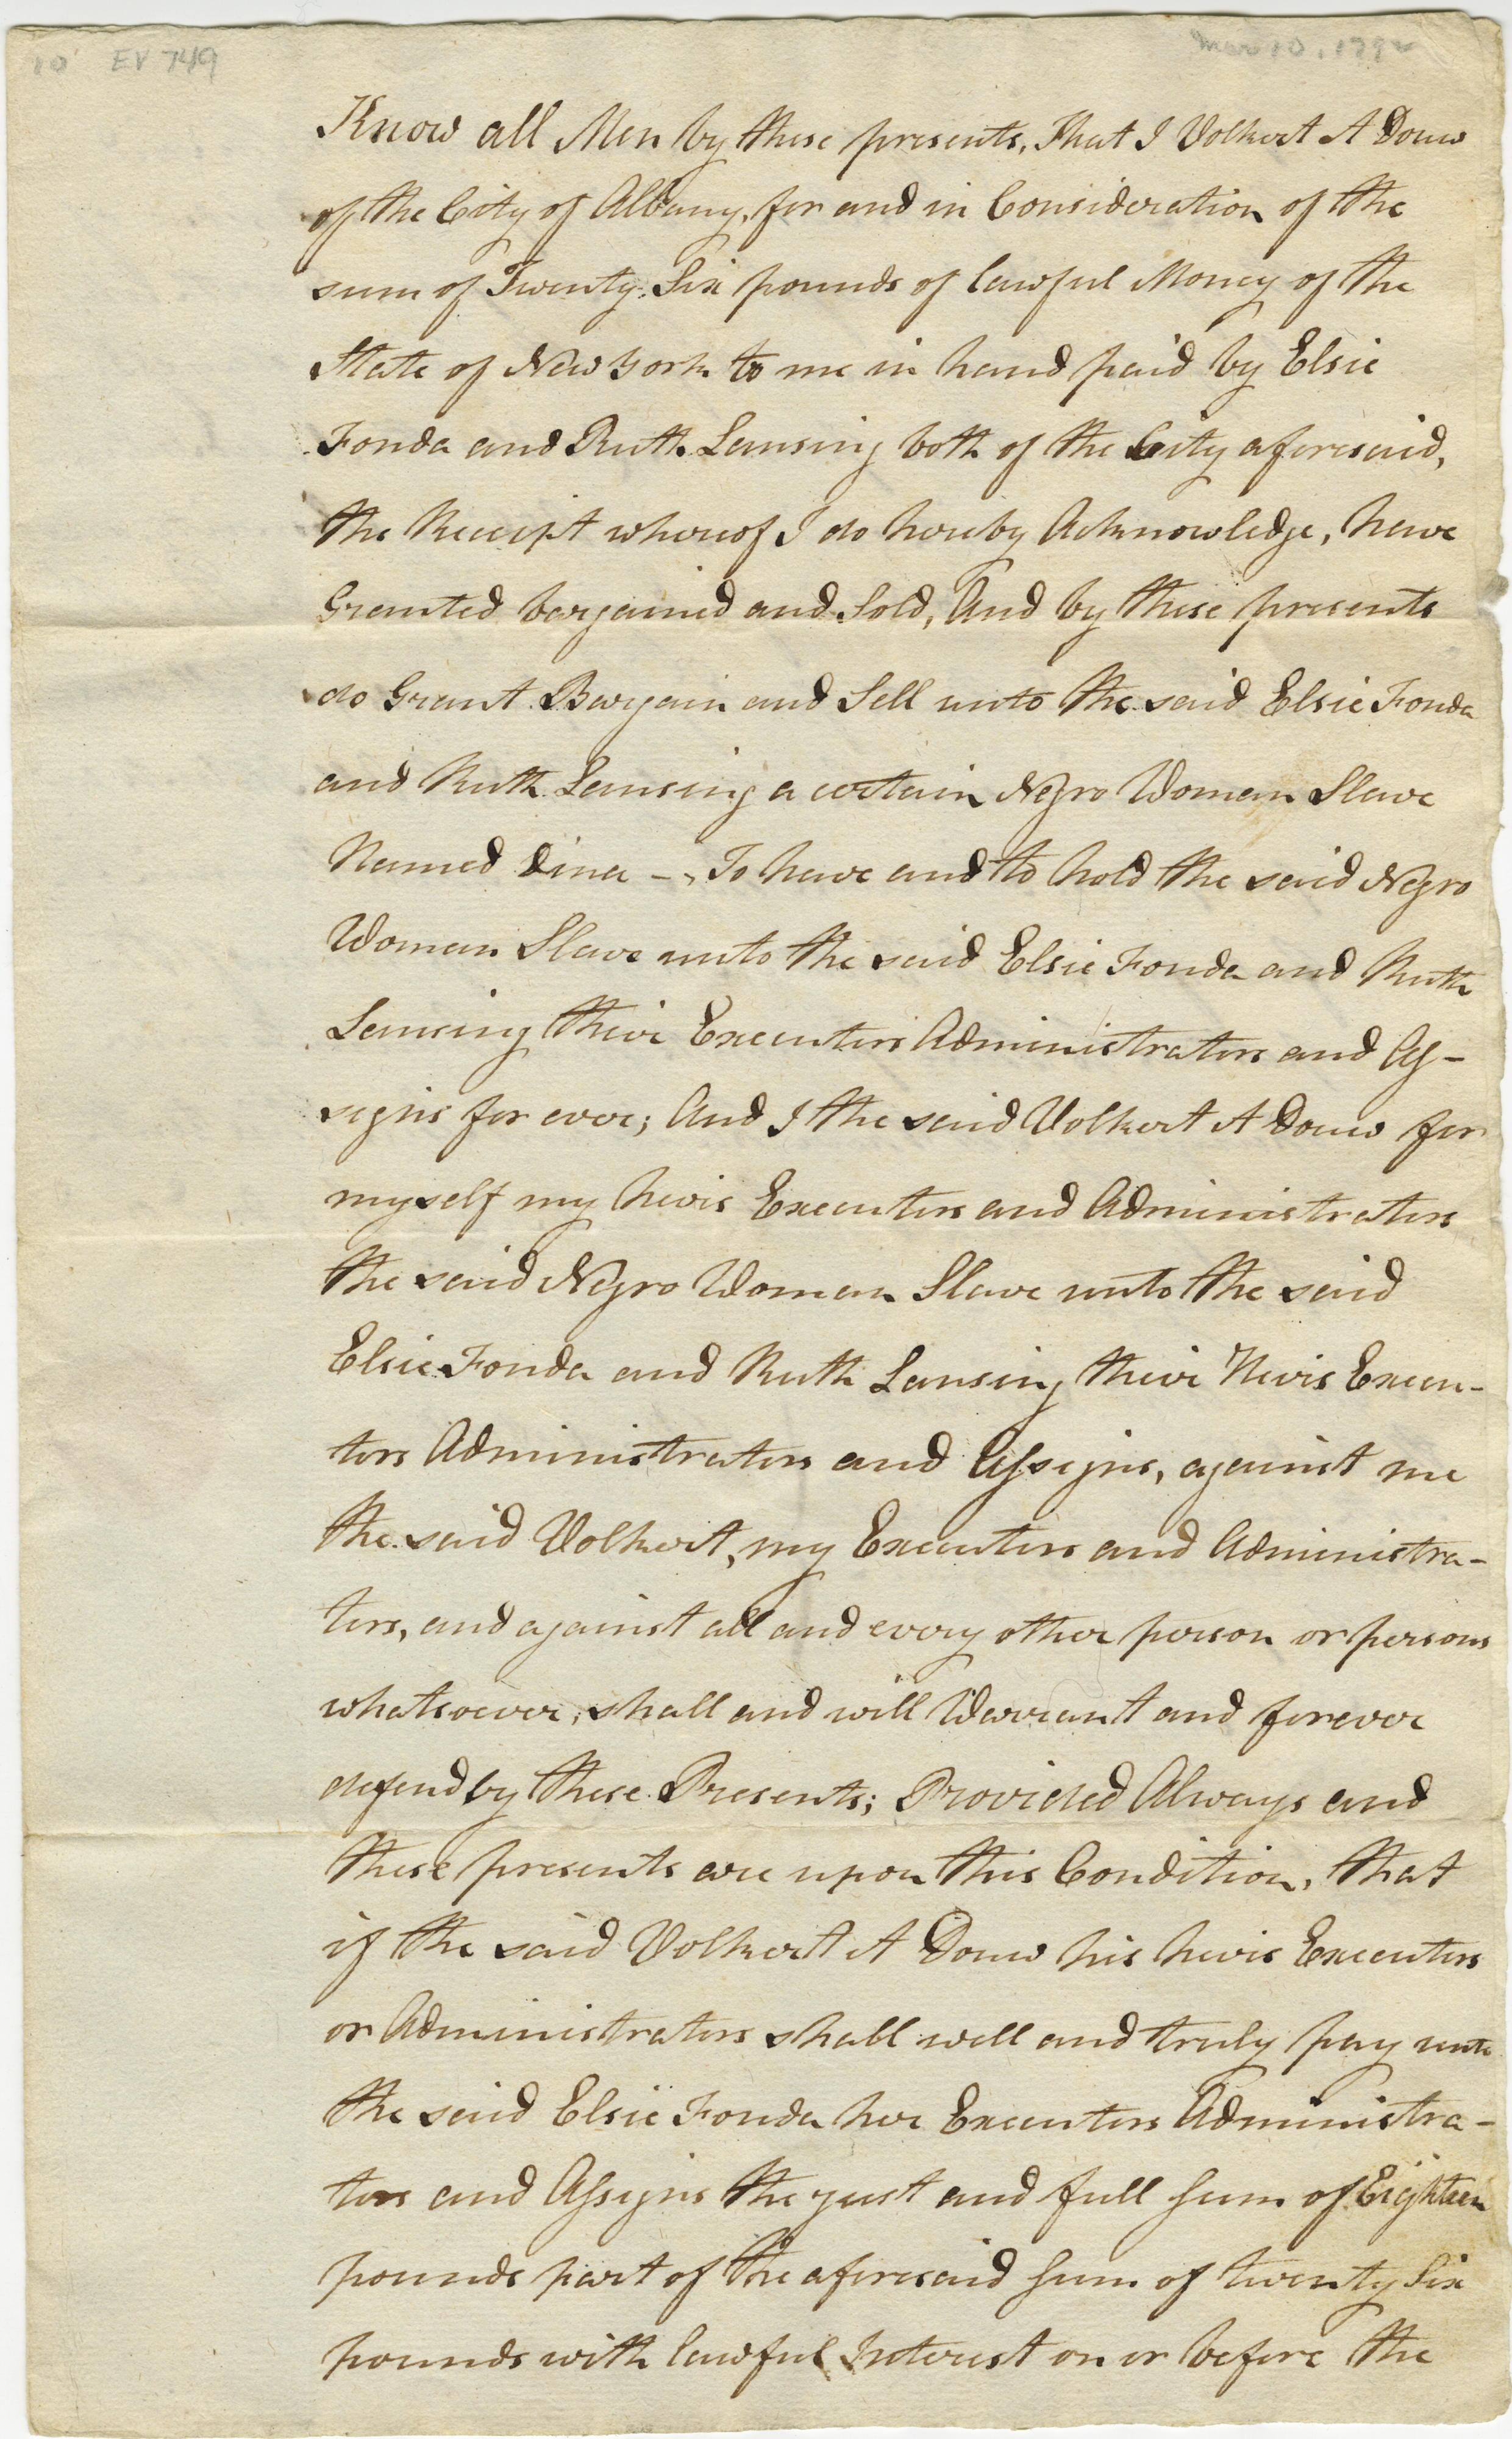 10 EV 749
Mar 10, 1792
Know all Men by these presents, That I Volkert A Douw
of the City of Albany, for and in Consideration of the
sum of Twenty Six pounds of lawful Money of the
State of New York to me in hand paid by Elsie
Fonda and Ruth Lansing both of the City aforesaid,
the Receipt whereof I do hereby Acknowledge, have
Granted bargained and Sold, And by these presents
do Grant Bargain and Sell unto the said Elsie Fonda
and Ruth Lansing a certain Negro Woman Slave
Named Dina -, To have and to hold the said Negro
Woman Slave unto the said Elsie Fonda and Ruth
Lansing their Executors Administrators and As-
signs for ever; And I the said Volkert A Douw for
myself my heirs Executors and Administrators
the said Negro Woman Slave unto the said
Elsie Fonda and Ruth Lansing their Heirs Execu-
tors Administrators and Assigns, against me
the said Volkert, my Executors and Administra-
tors, and against all and every other person or persons
whatsoever, shall and will Warrant and forever
defend by these Presents; Provided Always and
these presents are upon this Condition, that
if the said Volkert A Douw his heirs Executors
or Administrators shall well and truly pay unto
the said Elsie Fonda her Executors Administra-
tors and Assigns the just and full sum of Eighteen
pounds part of the aforesaid sum of twenty Six
pounds with lawful Interest on or before the